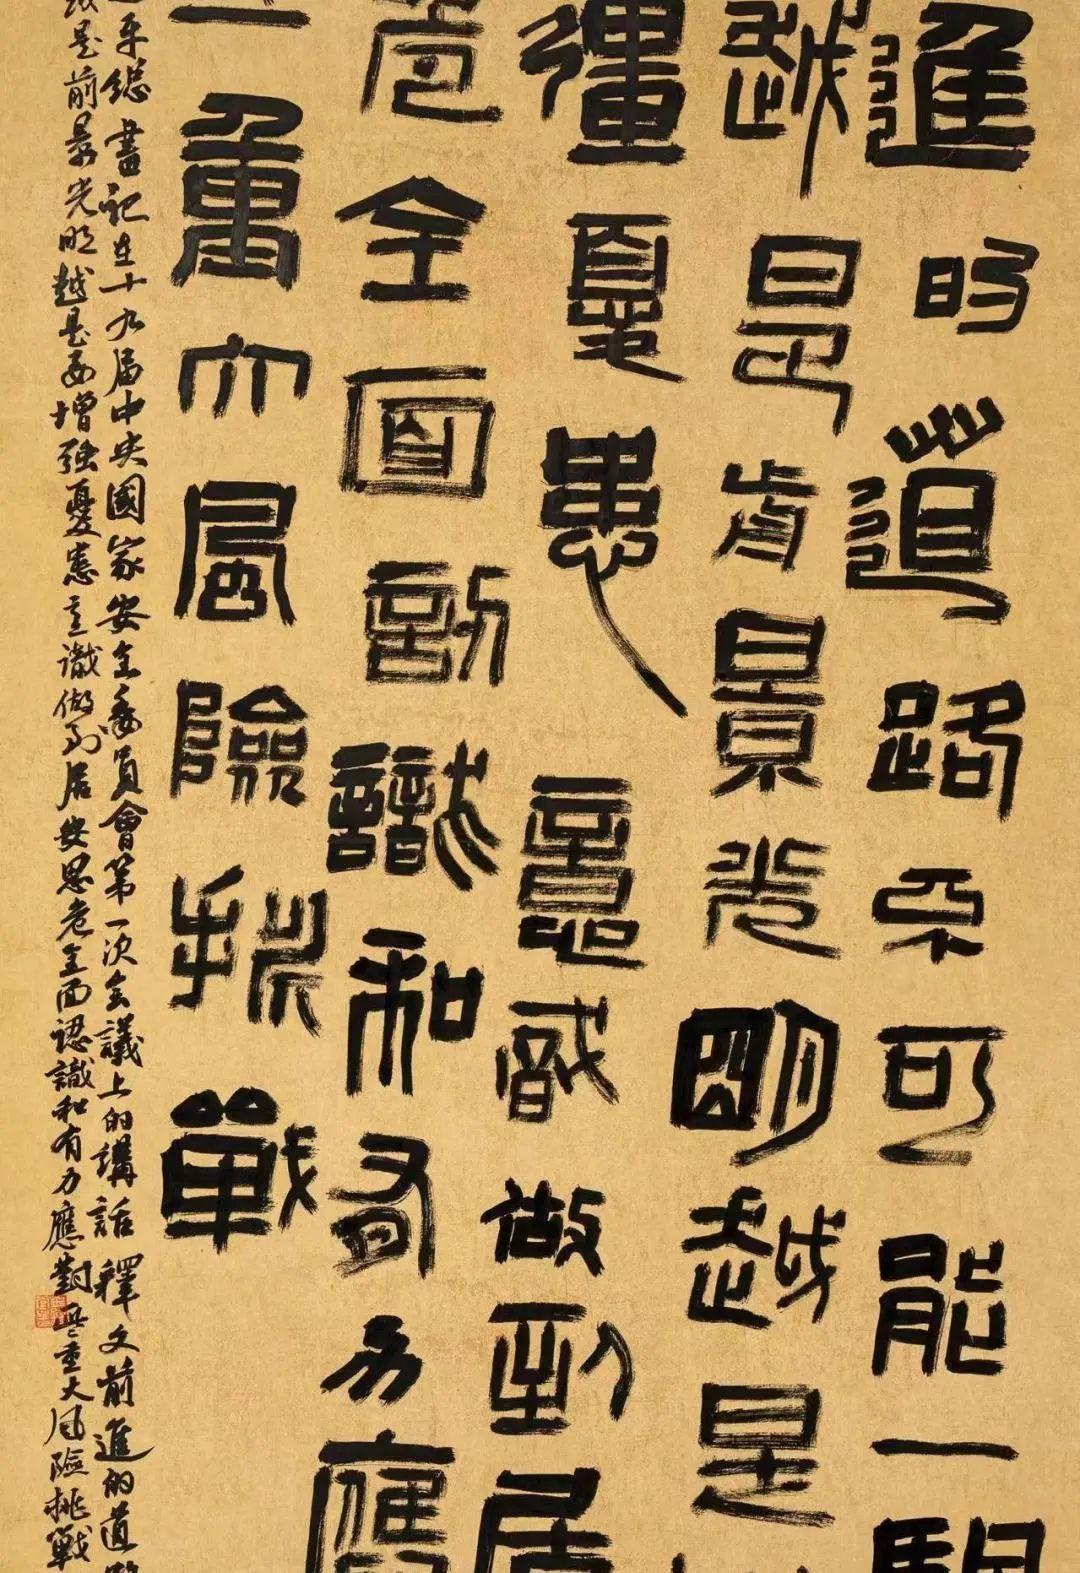 進的道路不可能一
越是前景光明越是
彊憂患意識做到居
危全面認識和有力應
重大風險挑戰
平總書記在十九屆中央國家安全委員會第一次會議上的講話釋文前進的道路
越是前景光明越是要增強憂患意識做到居安思危全面認識和有力應對些重大風險挑戰